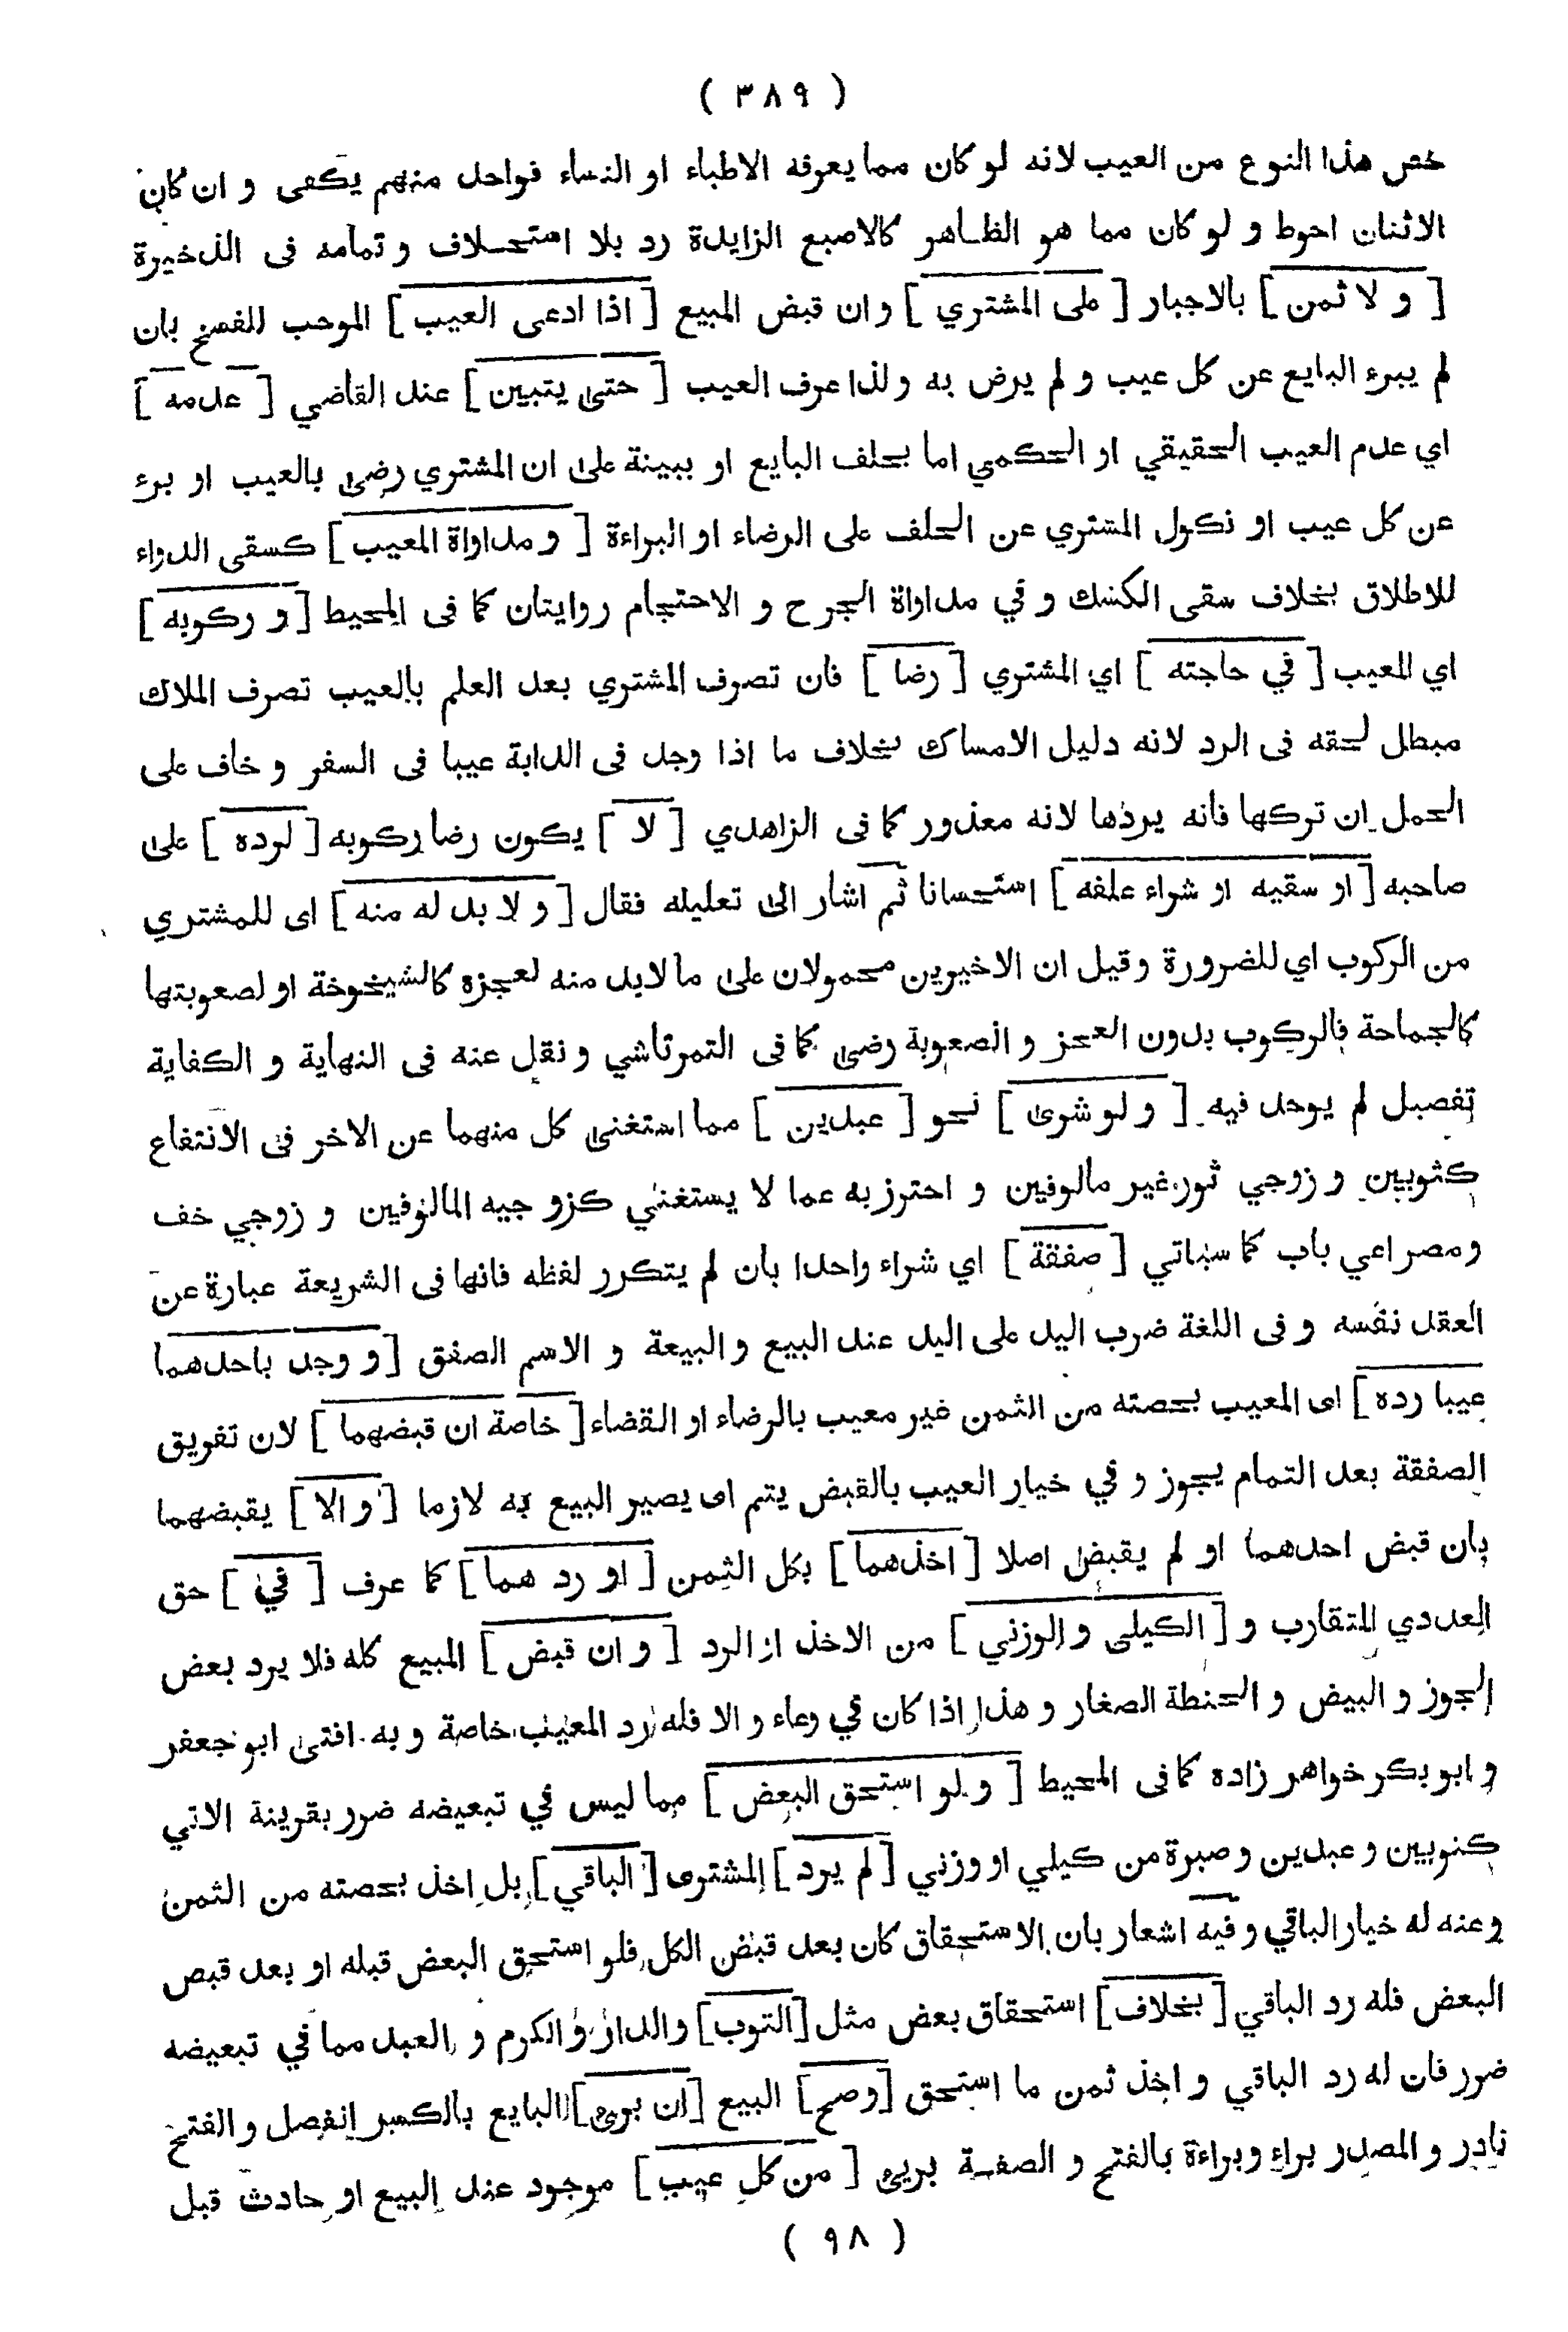 ( ٣٨٩ )
خص هذا النوع من العيب لانه لو كان مما يعرفه الاطباء او النساء فواحد منهم يكفى و ان كان
الاثنان احوط و لو كان مما هو الظاهر كالاصبع الزايدة رد بلا استحلاف و تمامه فى الذخيرة
[ و لا ثمن ] بالاجبار [ على المشتري ] و ان قبض المبيع [ اذا ادعى العيب ] الموجب للفسخ بان
لم يبرء البايع عن كل عيب و لم يرض به و لذا عرف العيب [ حتى يتبين ] عند القاضي [ عدمه ]
اي عدم العيب الحقيقي او الحكمي اما بحلف البايع او ببينة على ان المشتري رضى بالعيب او برء
عن كل عيب او نكول المشتري عن الحلف على الرضاء او البراءة [ و مداواة المعيب ] كسقى الدواء
للاطلاق بخلاف سقى الكشك و في مداواة الجرح و الاحتجام روايتان كما فى المحيط [ و ركوبه ]
اي المعيب [ في حاجته ] اي المشتري [ رضا ] فان تصرف المشتري بعد العلم بالعيب تصرف الملاك
مبطل لحقه فى الرد لانه دليل الامساك بخلاف ما اذا وجد فى الدابة عيبا فى السفر و خاف على
الحمل ان تركها فانه يردها لانه معذور كما فى الزاهدي [ لا ] يكون رضا ركوبه [ لرده ] على
صاحبه [ او سقيه او شراء علفه ] استحسانا ثم اشار الى تعليله فقال [ و لا بد له منه ] اى للمشتري
من الركوب اي للضرورة و قيل ان الاخيرين محمولان على ما لابد منه لعجزه كالشيخوخة او لصعوبتها
كالجماحة فالركوب بدون العجز و الصعوبة رضى كما فى التمرتاشي و نقل عنه فى النهاية و الكفاية
تفصيل لم يوجد فيه [ و لو شرى ] نحو [ عبدين ] مما استغنى كل منهما عن الاخر فى الانتفاع
كثوبين و زوجي ثور غير مالوفين و احترز به عما لا يستغني كزوجيه المالوفين و زوجي خف
و مصراعي باب كما سياتي [ صفقة ] اي شراء واحدا بان لم يتكرر لفظه فانها فى الشريعة عبارة عن
العقد نفسه و فى اللغة ضرب اليد على اليد عند البيع و البيعة و الاسم الصفق [ و وجد باحدهما
عيبا رده ] اى المعيب بحصته من الثمن غير معيب بالرضاء او القضاء [ خاصة ان قبضهما ] لان تفريق
الصفقة بعد التمام يجوز و في خيار العيب بالقبض يتم اى يصير البيع به لازما [ و الا ] يقبضهما
بان قبض احدهما او لم يقبض اصلا [ اخذهما ] بكل الثمن [ او رد هما ] كما عرف [ في ] حق
العددي المتقارب و [ الكيلى و الوزني ] من الاخذ او الرد [ و ان قبض ] المبيع كله فلا يرد بعض
الجوز و البيض و الحنطة الصغار و هذا اذا كان في وعاء و الا فله رد المعيب خاصة و به افتى ابو جعفر
و ابو بكر خواهر زاده كما فى المحيط [ و لو استحق البعض ] مما ليس في تبعيضه ضرر بقرينة الاتي
كثوبين و عبدين و صبرة من كيلي او وزني [ لم يرد ] المشترى [ الباقي ] بل اخذ بحصته من الثمن
و عنه له خيار الباقي و فيه اشعار بان الاستحقاق كان بعد قبض الكل فلو استحق البعض قبله او بعد قبض
البعض فله رد الباقي [ بخلاف ] استحقاق بعض مثل [ الثوب ] والدار و الكرم و العبد مما في تبعيضه
ضرر فان له رد الباقي و اخذ ثمن ما استحق [ وصح ] البيع [ ان برئ ] البايع بالكسر انفصل و الفتح
نادر و المصدر براء و براءة بالفتح و الصفة بريئ [ من كل عيب ] موجود عند البيع او حادث قبل
( ٩٨ )